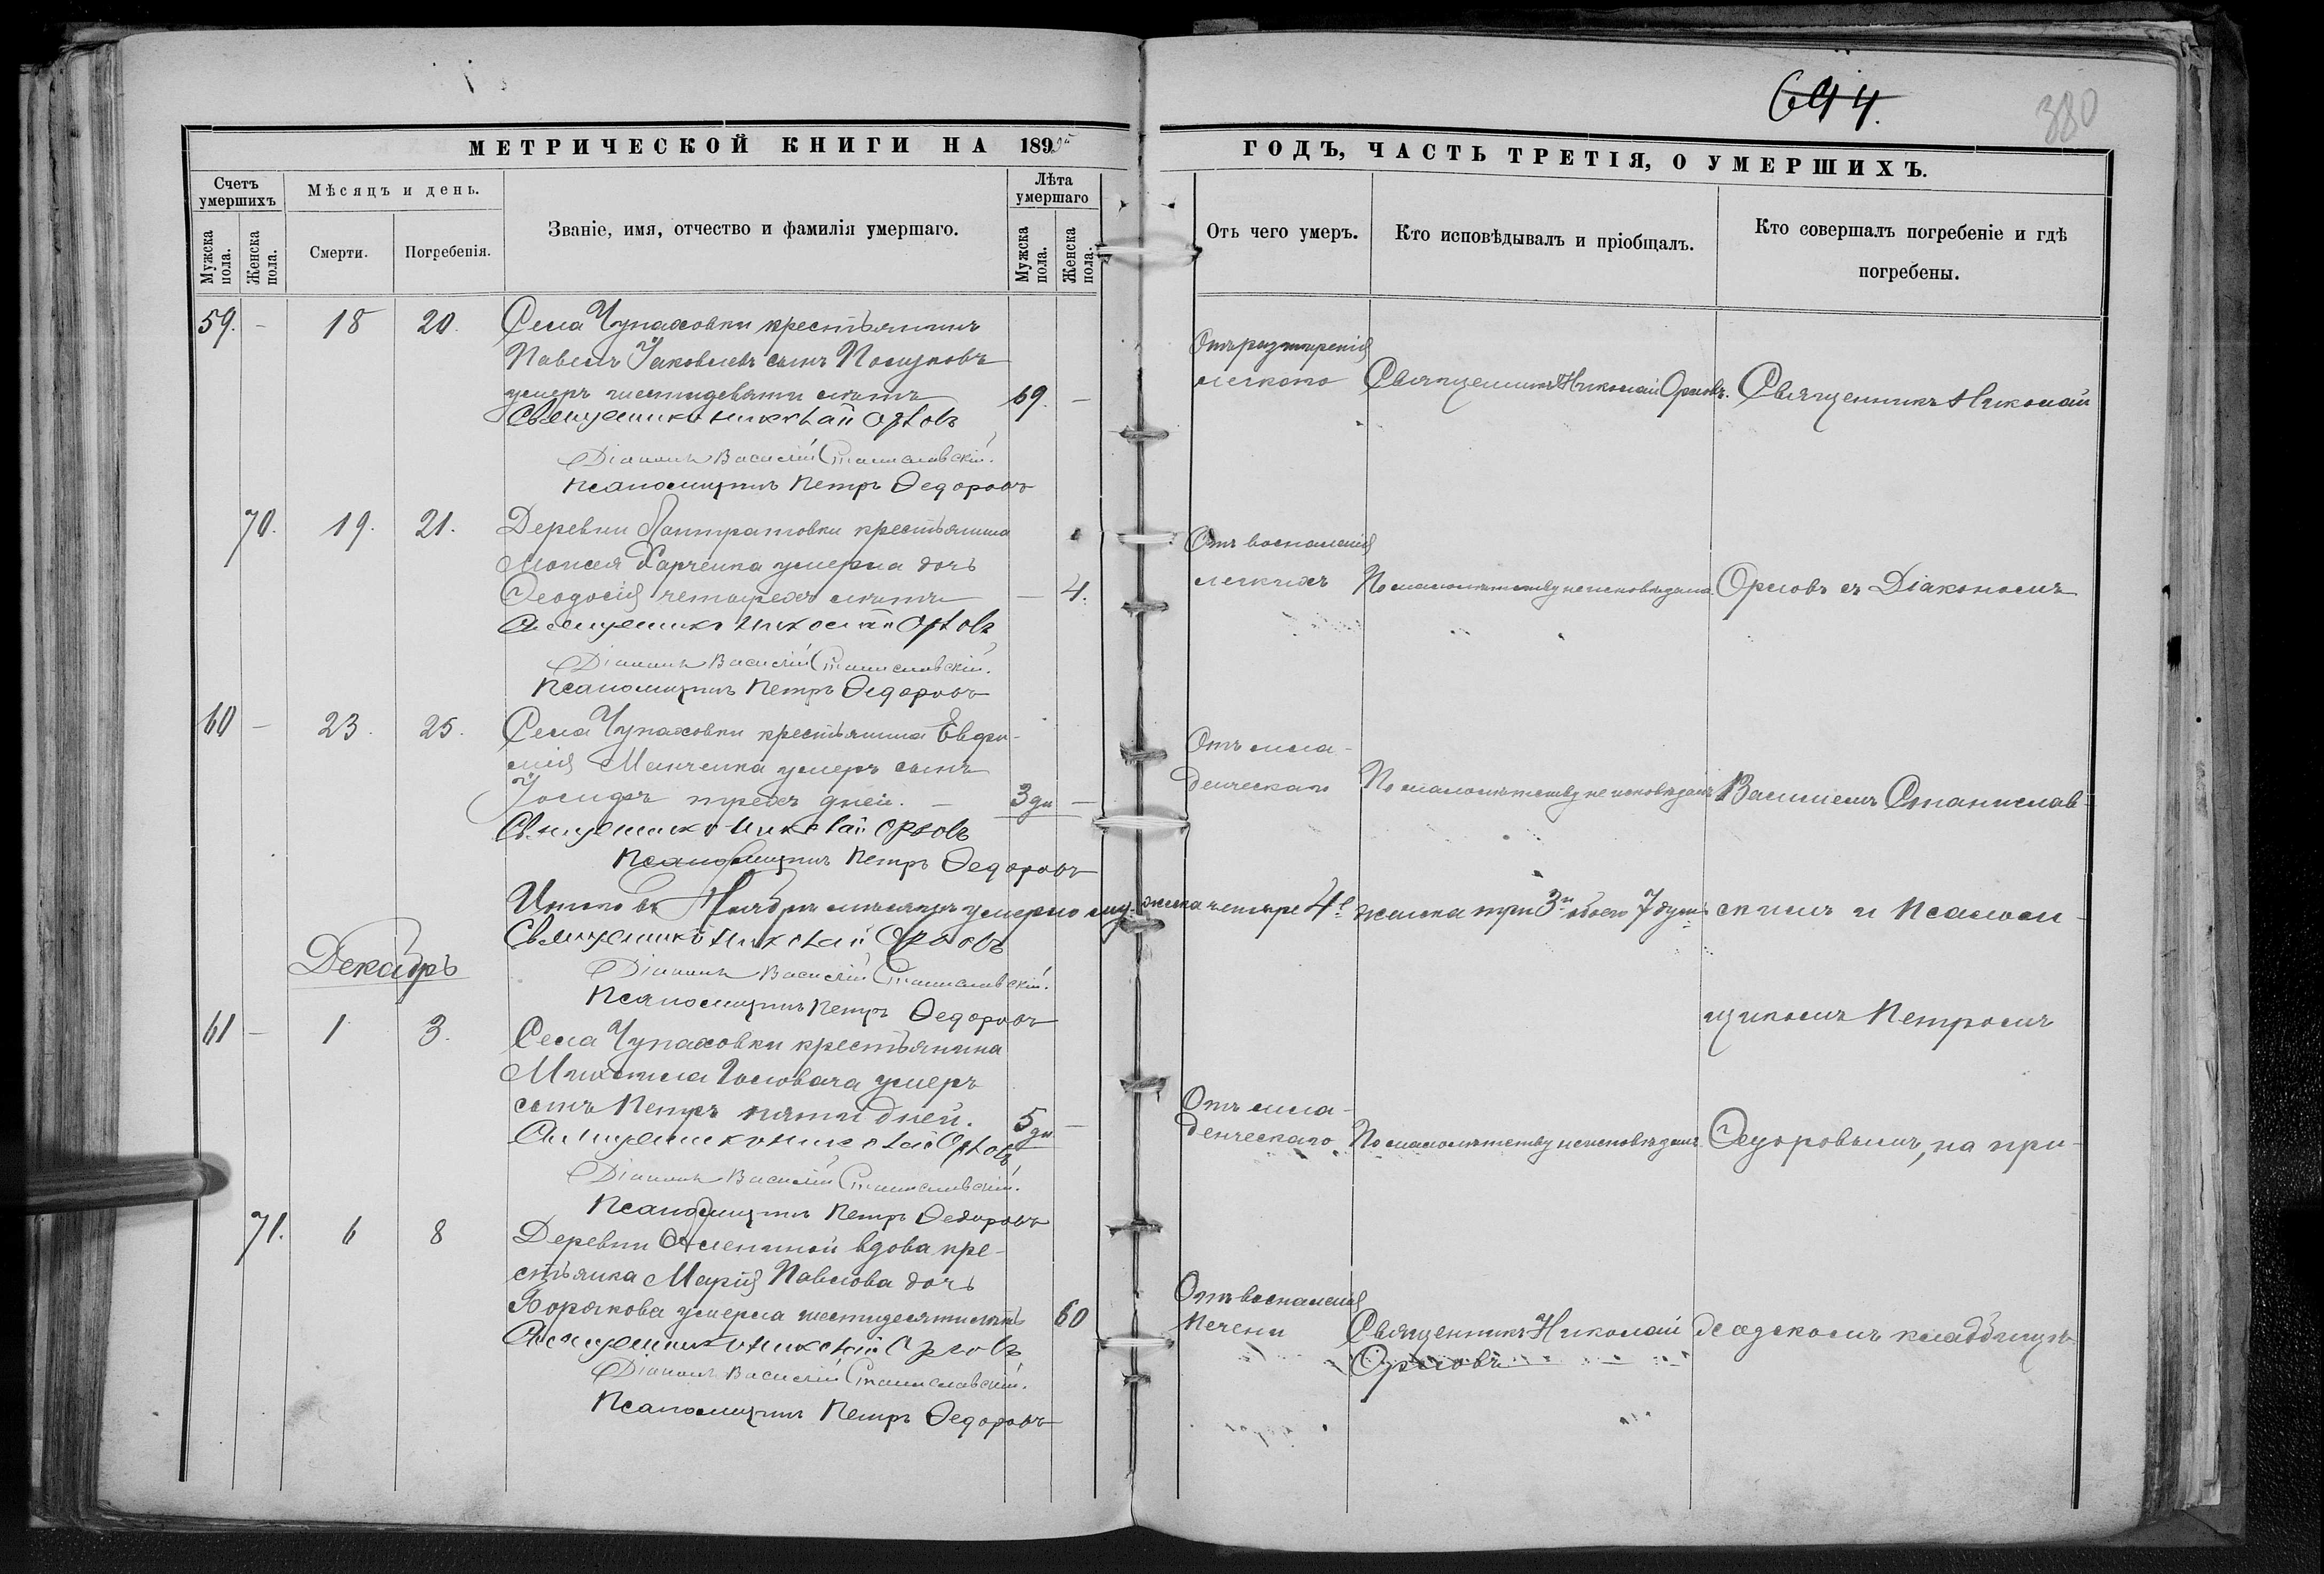 644.
380
МЕТРИЧЕСКОЙ КНИГИ НА 1895й
ГОДЪ, ЧАСТЬ ТРЕТІЯ, О УМЕРШИХЪ.
Счетъ умершихъ
Мѣсяцъ и день.
Званіе, имя, отчество и фамилія умершаго.
Лѣта умершаго
Мужска пола.
Женска пола.
Смерти.
Погребенія.
Мужска пола.
Женска пола.
Отъ чего умеръ.
Кто исповѣдывалъ и пріобщалъ.
Кто совершалъ погребеніе и гдѣ погребены.
59. - 18 20. Села Чупаховки крестьянинъ
Павелъ Яковлевъ сынъ
умеръ лѣтъ 69. -
Священникъ Николай Орловъ
Діаконъ Василій Станиславскій.
Псаломщикъ Петръ Ѳедоровъ
Отъ разширенія
легкого
Священникъ Николай Орловъ.
Священникъ Николай
70. 19. 21. Деревни крестьянина
Моисея Харченка умерла дочь
Ѳеодосія четырехъ лѣтъ - 4.
Священникъ Николай Орловъ
Діаконъ Василій Станиславскій.
Псаломщикъ Петръ Ѳедоровъ
Отъ воспаленія
легкихъ
По малолѣтству неисповѣдана.
Орловъ съ Діакономъ
60 - 23. 25. Села Чупаховки крестьянина Евфи-
мія умеръ сынъ
Іосифъ трехъ дней. - 3 дн -
Священникъ Николай Орловъ
Псаломщикъ Петръ Ѳедоровъ
Отъ мла-
денческаго
По малолѣтству не исповѣданъ
Василіемъ Станислав-
Итого въ Ноябрѣ мѣсяцѣ умерло мужска четыре 4е женска три 3и обоего 7 душъ
Священникъ Николай Орловъ
Діаконъ Василій Станиславскій.
Псаломщикъ Петръ Ѳедоровъ
скимъ и Псалом-
Декабрь
61 - 1 3. Села Чупаховки крестьянина
Михаила Головача умеръ
сынъ Петръ пяти дней. 5 дн -
Священникъ Николай Орловъ
Діаконъ Василій Станиславскій.
Псаломщикъ Петръ Ѳедоровъ
щикомъ Петромъ
Отъ мла-
денческаго
По малолѣтству неисповѣданъ.
Ѳедоровымъ, на при-
71. 6 8 Деревни вдова кре-
стьянка Марія Павлова дочь
умерла шестидесяти лѣтъ 60
Священникъ Николай Орловъ
Діаконъ Василій Станиславскій.
Псаломщикъ Петръ Ѳедоровъ
Отъ воспаленія
печени
Священникъ Николай
Орловъ
ходскомъ кладбищѣ